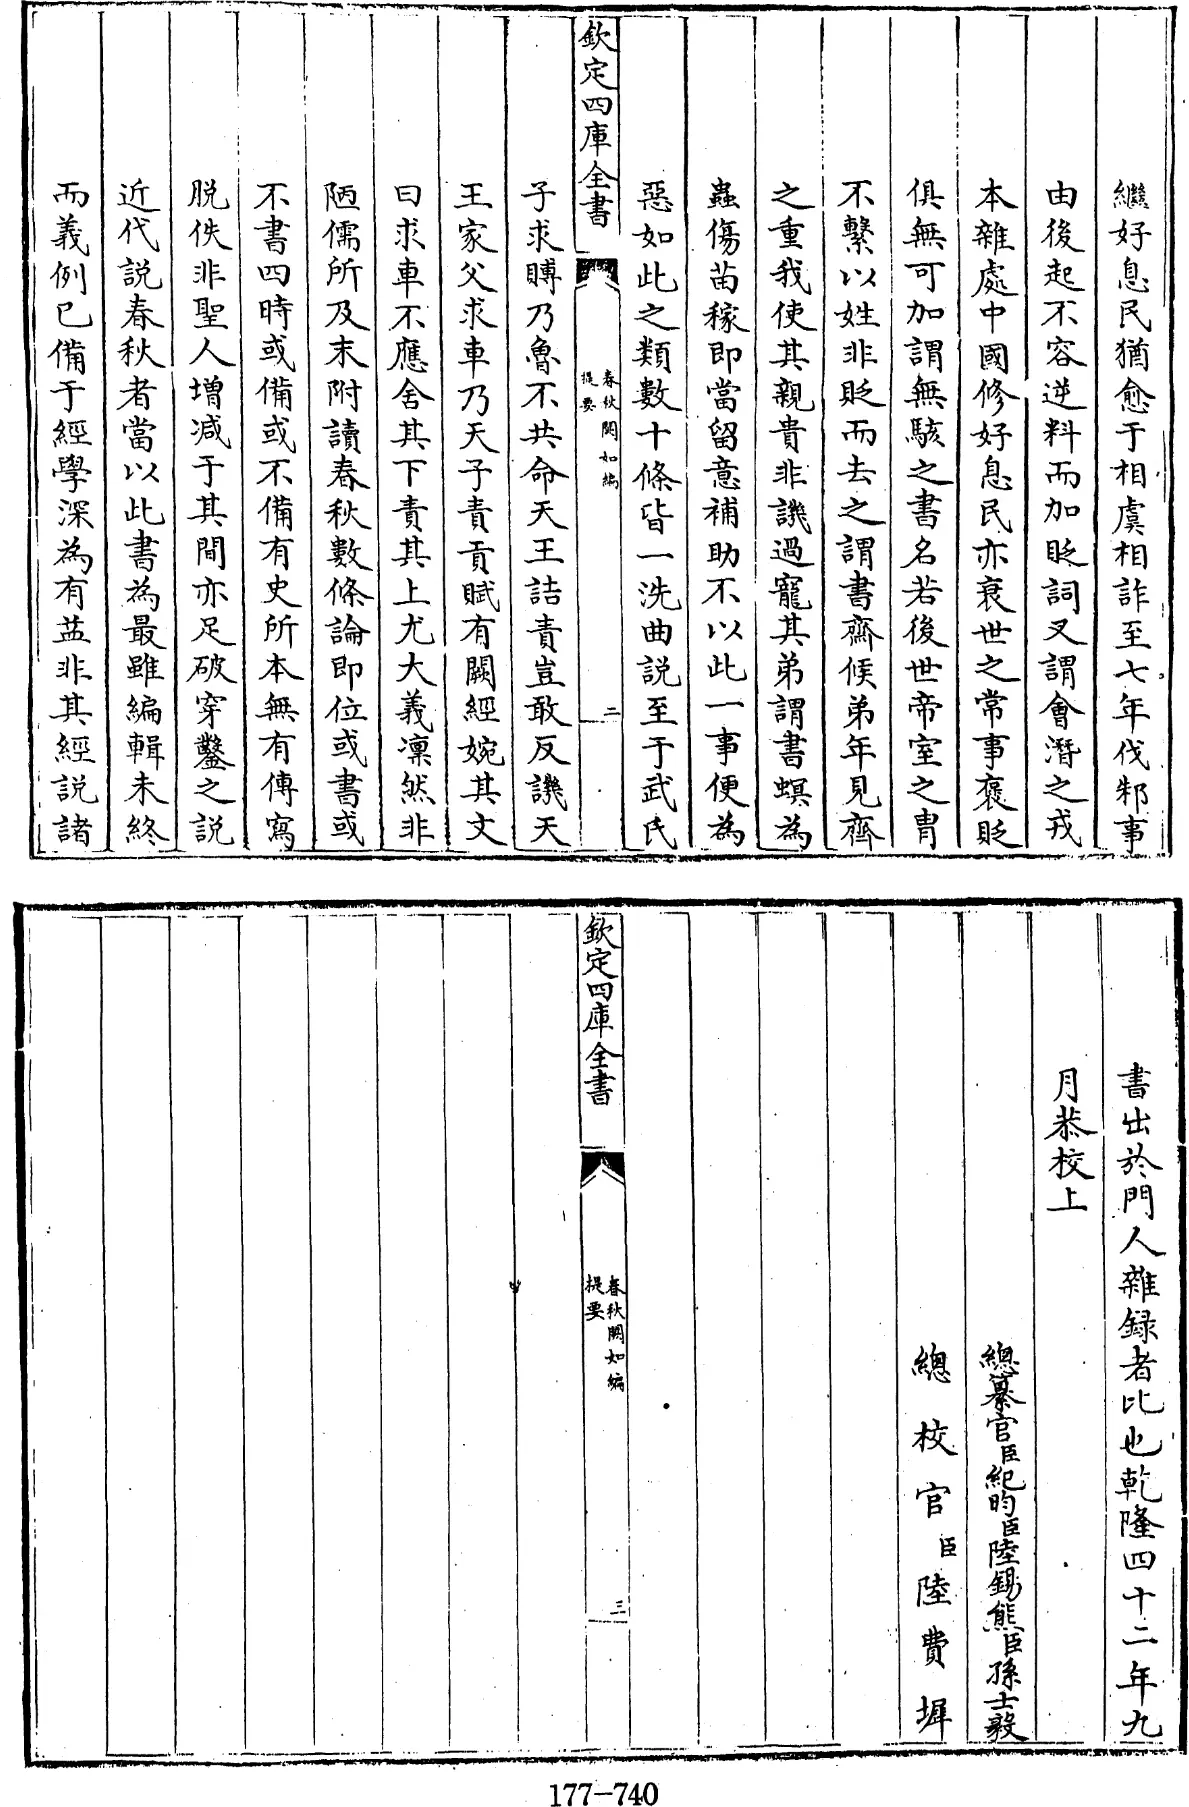 繼好息民猶愈于相虞相詐至七年伐邾事
由後起不容逆料而加貶詞又謂會潛之戎
本雜處中國修好息民亦衰世之常事褒貶
俱無可加謂無駭之書名若後世帝室之胄
不繫以姓非貶而去之謂書齊侯弟年見齊
之重我使其親貴非譏過寵其弟謂書螟為
蟲傷苗稼即當留意補助不以此一事便為
惡如此之類數十條皆一洗曲説至于武氏
欽定四庫全書
春秋闕如編
提要
二
子求賻乃魯不共命天王詰責豈敢反譏天
王家父求車乃天子責貢賦有闕經婉其文
曰求車不應舍其下責其上尤大義凜然非
陋儒所及末附讀春秋數條論即位或書或
不書四時或備或不備有史所本無有傳寫
脱佚非聖人增減于其間亦足破穿鑿之説
近代説春秋者當以此書為最雖編輯未終
而義例已備于經學深為有益非其經説諸
書出於門人雜録者比也乾隆四十二年九
月恭校上
總纂官臣紀昀臣陸錫熊臣孫士毅
總校官臣陸費墀
欽定四庫全書
春秋闕如編
提要
三
177-740